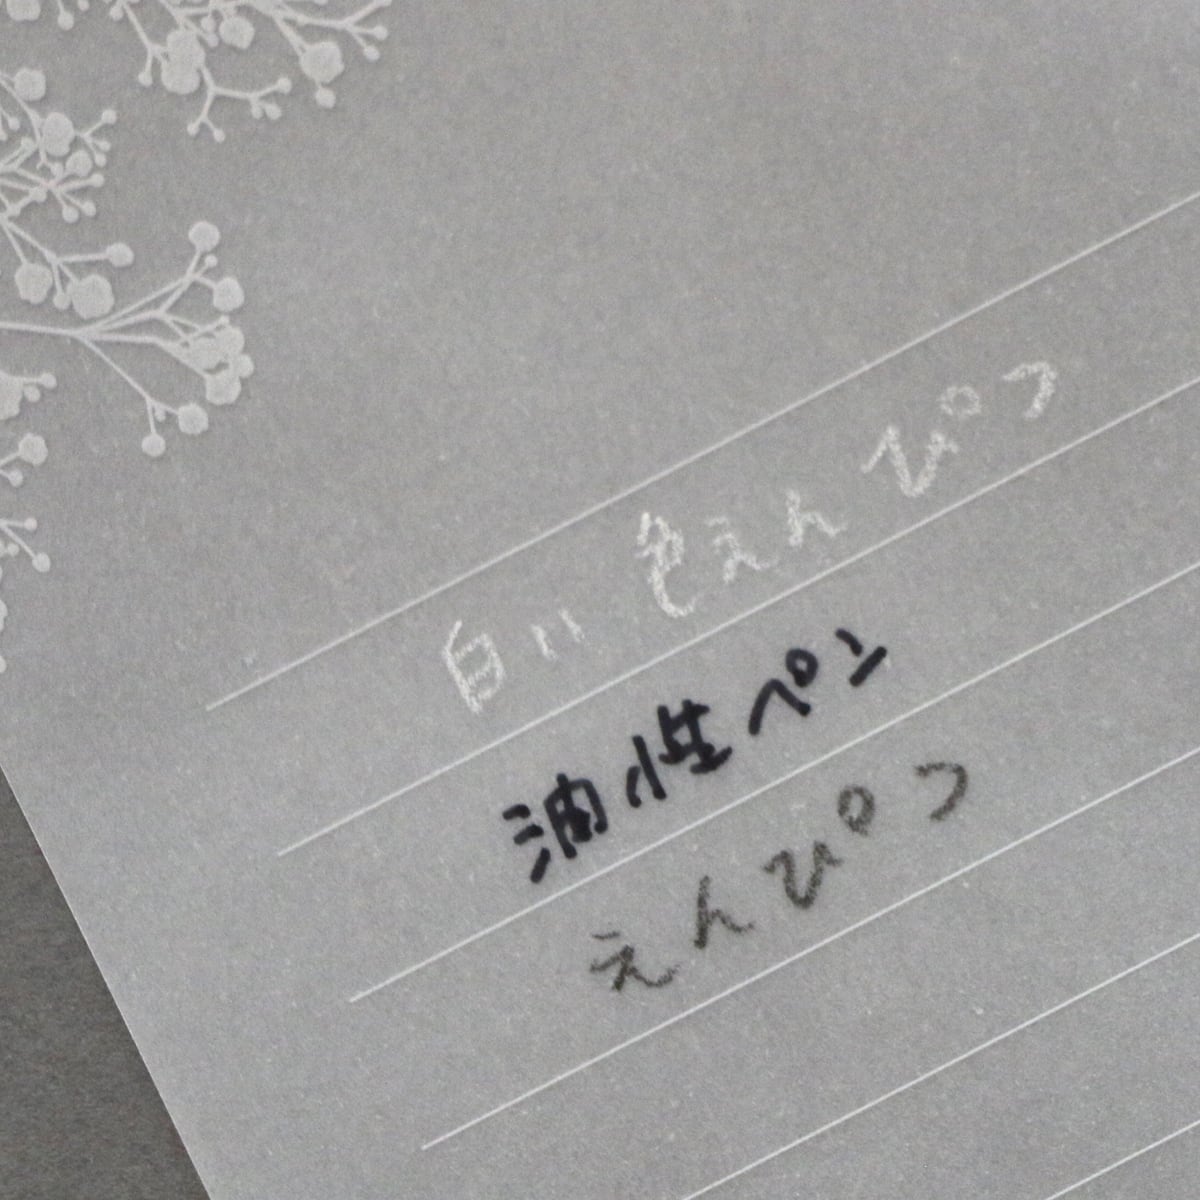 白い色えんぴつ
油性ペン
えんぴつ